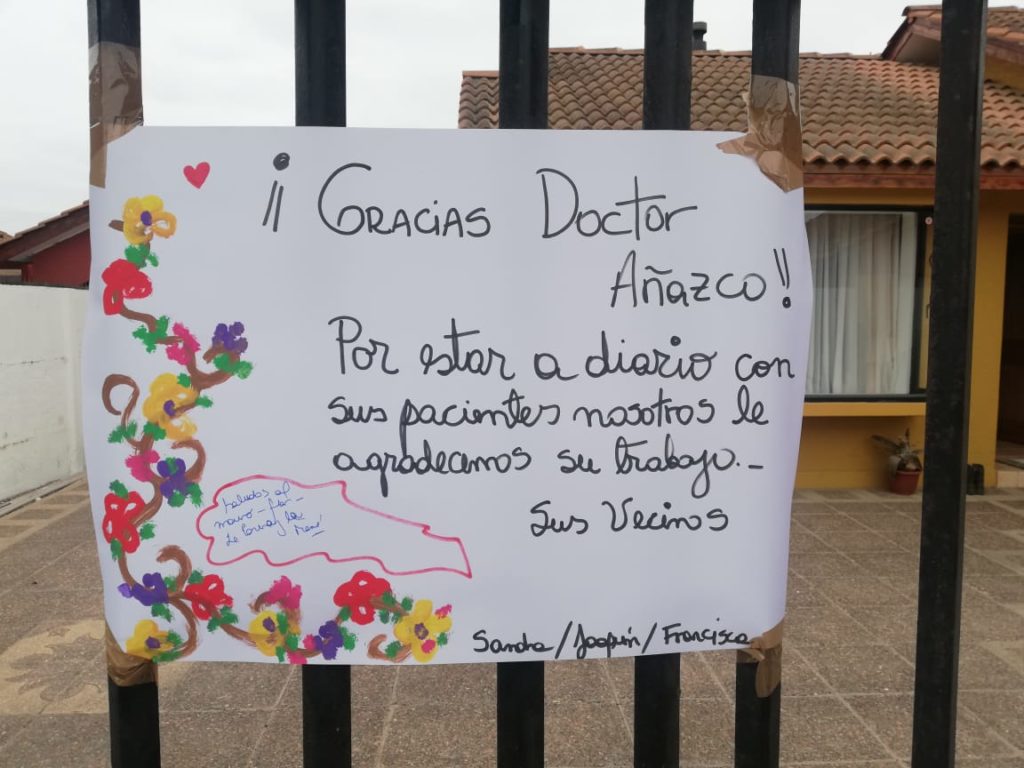 ¡¡ GRACIAS DOCTOR
AÑAZCO!!
Por estar a diario con
sus pacientes nosotros le
agradecemos su trabajo.-
Sus Vecinos
Saludos
Sandra/Joaquín/Francisca